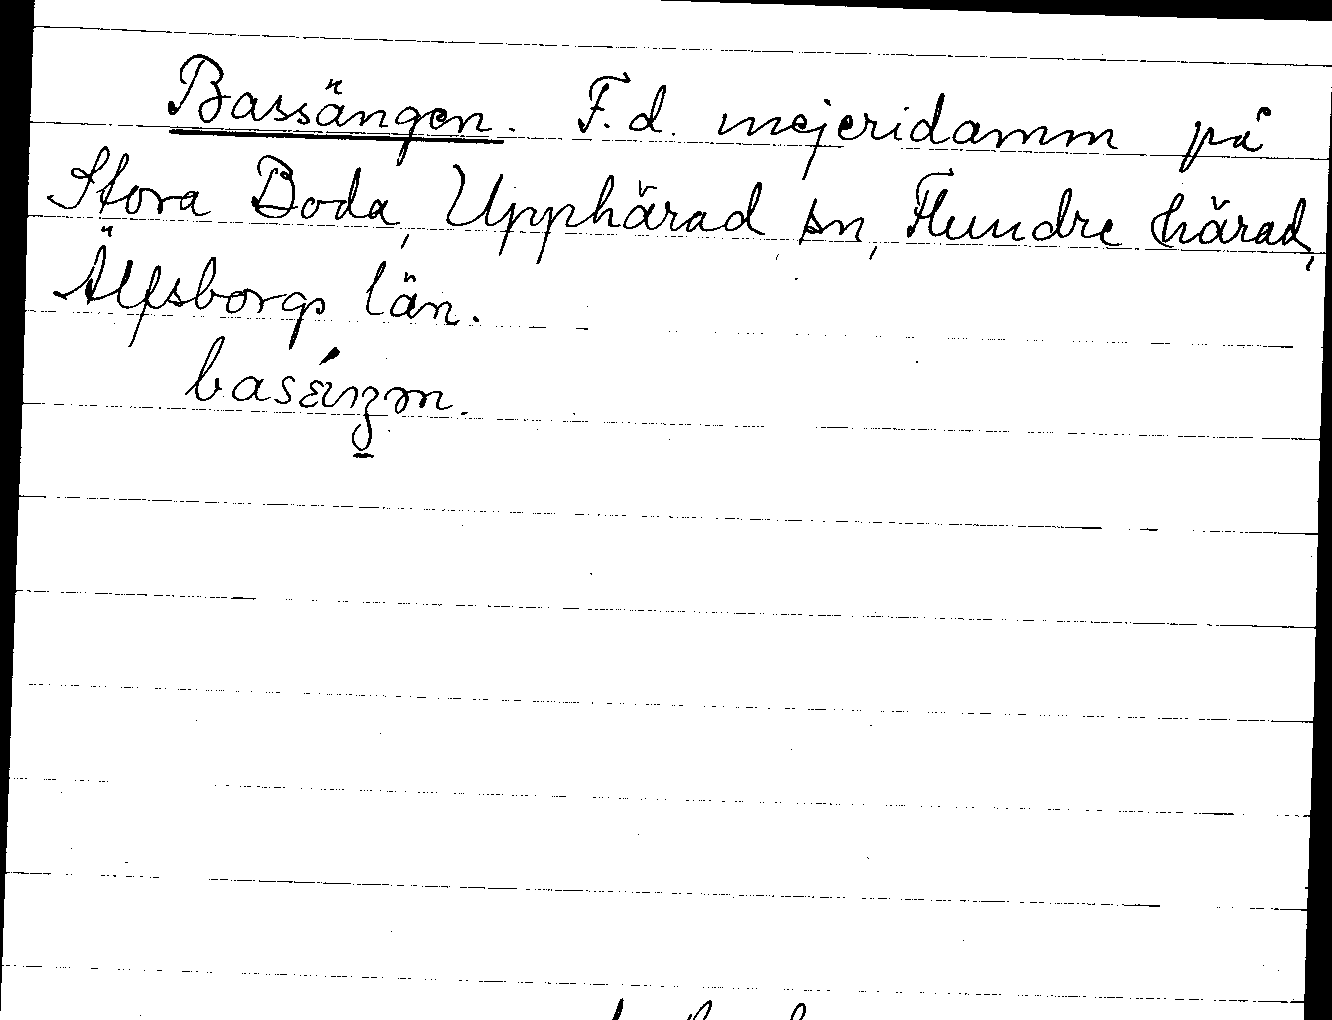 Bassängen. F.d. mejeridamm på
Stora Boda, Upphärad sn, Flundre härad,
Älfsborgs län.